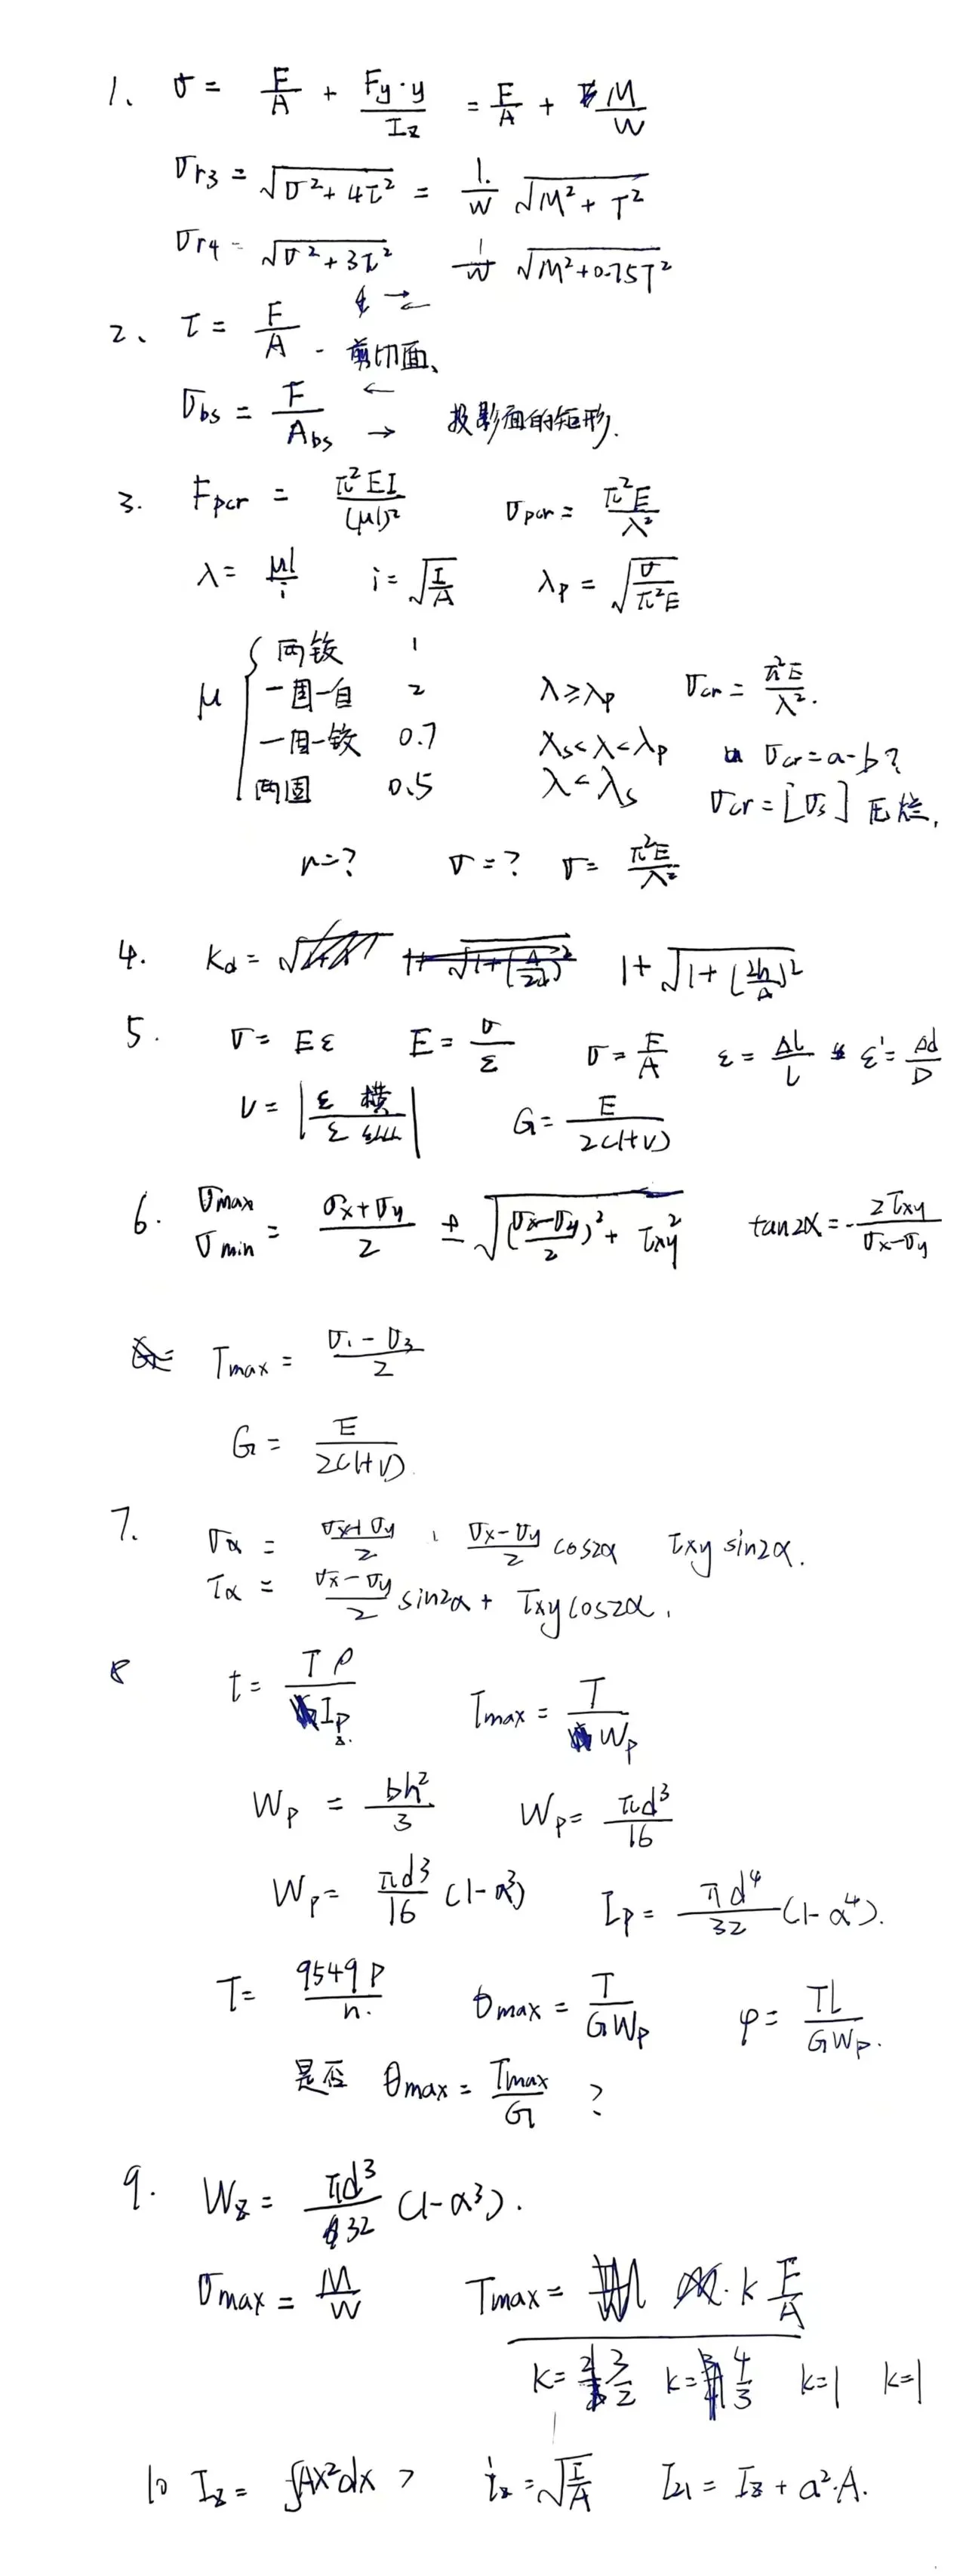 1、 σ = F/A + Fy·y/Iz = F/A + M/W
σr3 = √(σ²+4τ²) = 1/W √(M²+T²)
σr4 = √(σ²+3τ²) 1/W √(M²+0.75T²)
2、 τ = F/A → ←
剪切面、
σbs = F/Abs ← → 投影面的矩形.
3. Fpcr = π²EI/(μl)² σpcr = π²E/λ²
λ = μl/i i = √(I/A) λp = √(σ/π²E)
μ { 两铰 1
一固一自 2 λ≥λp σcr = π²E/λ².
一固一铰 0.7 λs<λ<λp σcr = a-b?
两固 0.5 λ<λs σcr = [σs] 压烂.
n=? σ=? σ = π²E/λ²
4. Kd = 1+√(1+(2h/Δ)²)
5. σ = Eε E = σ/ε σ = F/A ε = ΔL/L ε' = Δd/D
ν = |ε横/ε| G = E/2(1+ν)
6. σmax σmin = (σx+σy)/2 ± √(((σx-σy)/2)² + τxy²) tan2α = -2τxy/(σx-σy)
τmax = (σ1-σ3)/2
G = E/2(1+ν)
7. σα = (σx+σy)/2 (σx-σy)/2 cos2α τxy sin2α.
τα = (σx-σy)/2 sin2α + τxy cos2α.
8 t = Tρ/Ip τmax = T/Wp
Wp = bh²/3 Wp = πd³/16
Wp = πd³/16 (1-α³) Ip = πd⁴/32 (1-α⁴).
T = 9549P/n. θmax = T/GWp φ = TL/GWp.
是否 θmax = τmax/G ?
9. Wz = πd³/32 (1-α³).
σmax = M/W τmax = k F/A
k = 3/2 k = 4/3 k=1 k=1
10 Iz = ∫Ax²dx ? iz = √(I/A) Iz1 = Iz + a²·A.